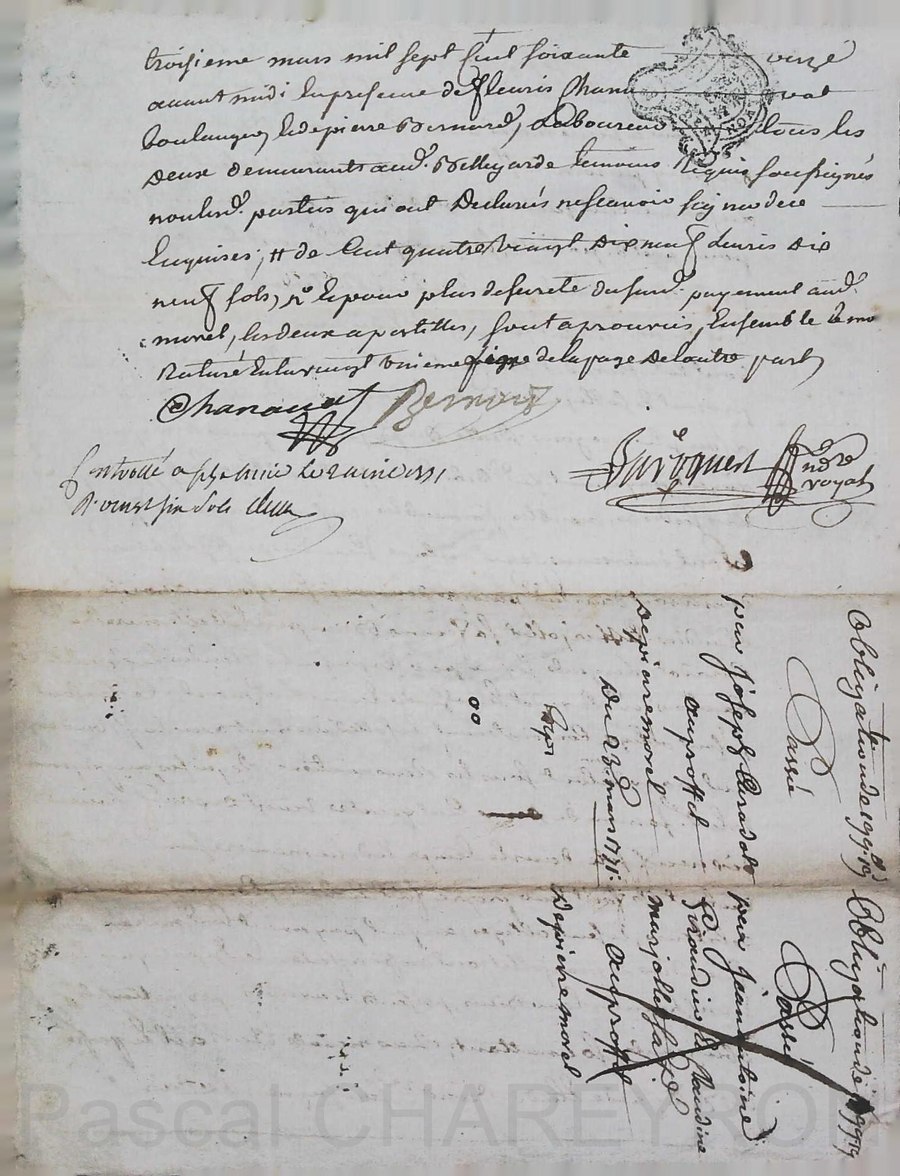 troisieme mars mil sept Cent soixante onze
avant midi En presence de fleuris Chana vat
boulanger, & de pierre Bernard, Laboureur tous les
deux demeurants aud. Bellegarde temoins Requis soussignés
non lesd. parties qui ont Declarés ne scavoir signer de ce
Enquises; # de Cent quatre vingt dix neuf Livres dix
neuf sols, & pour plus de sureté du susd. payement aud.
morel, les deux apostilles, sont aprouvés, Ensemble le mo
Raturé En la vingt ligne de la page De lautre part
Chanavat Bernard
Controllé a le
R. vingt six sols
nore
royal
Obligation de 199# 19s
Passée
par Joseph
au proffit
De pierre morel
Du 23e. mars 1771.
Exp.
00
Obligation de 199# 19s
Passée
par Jean antoine
Giraudin & Claudine
marjollet sa fe.
au proffit
De pierre morel
Pascal CHAREYRON